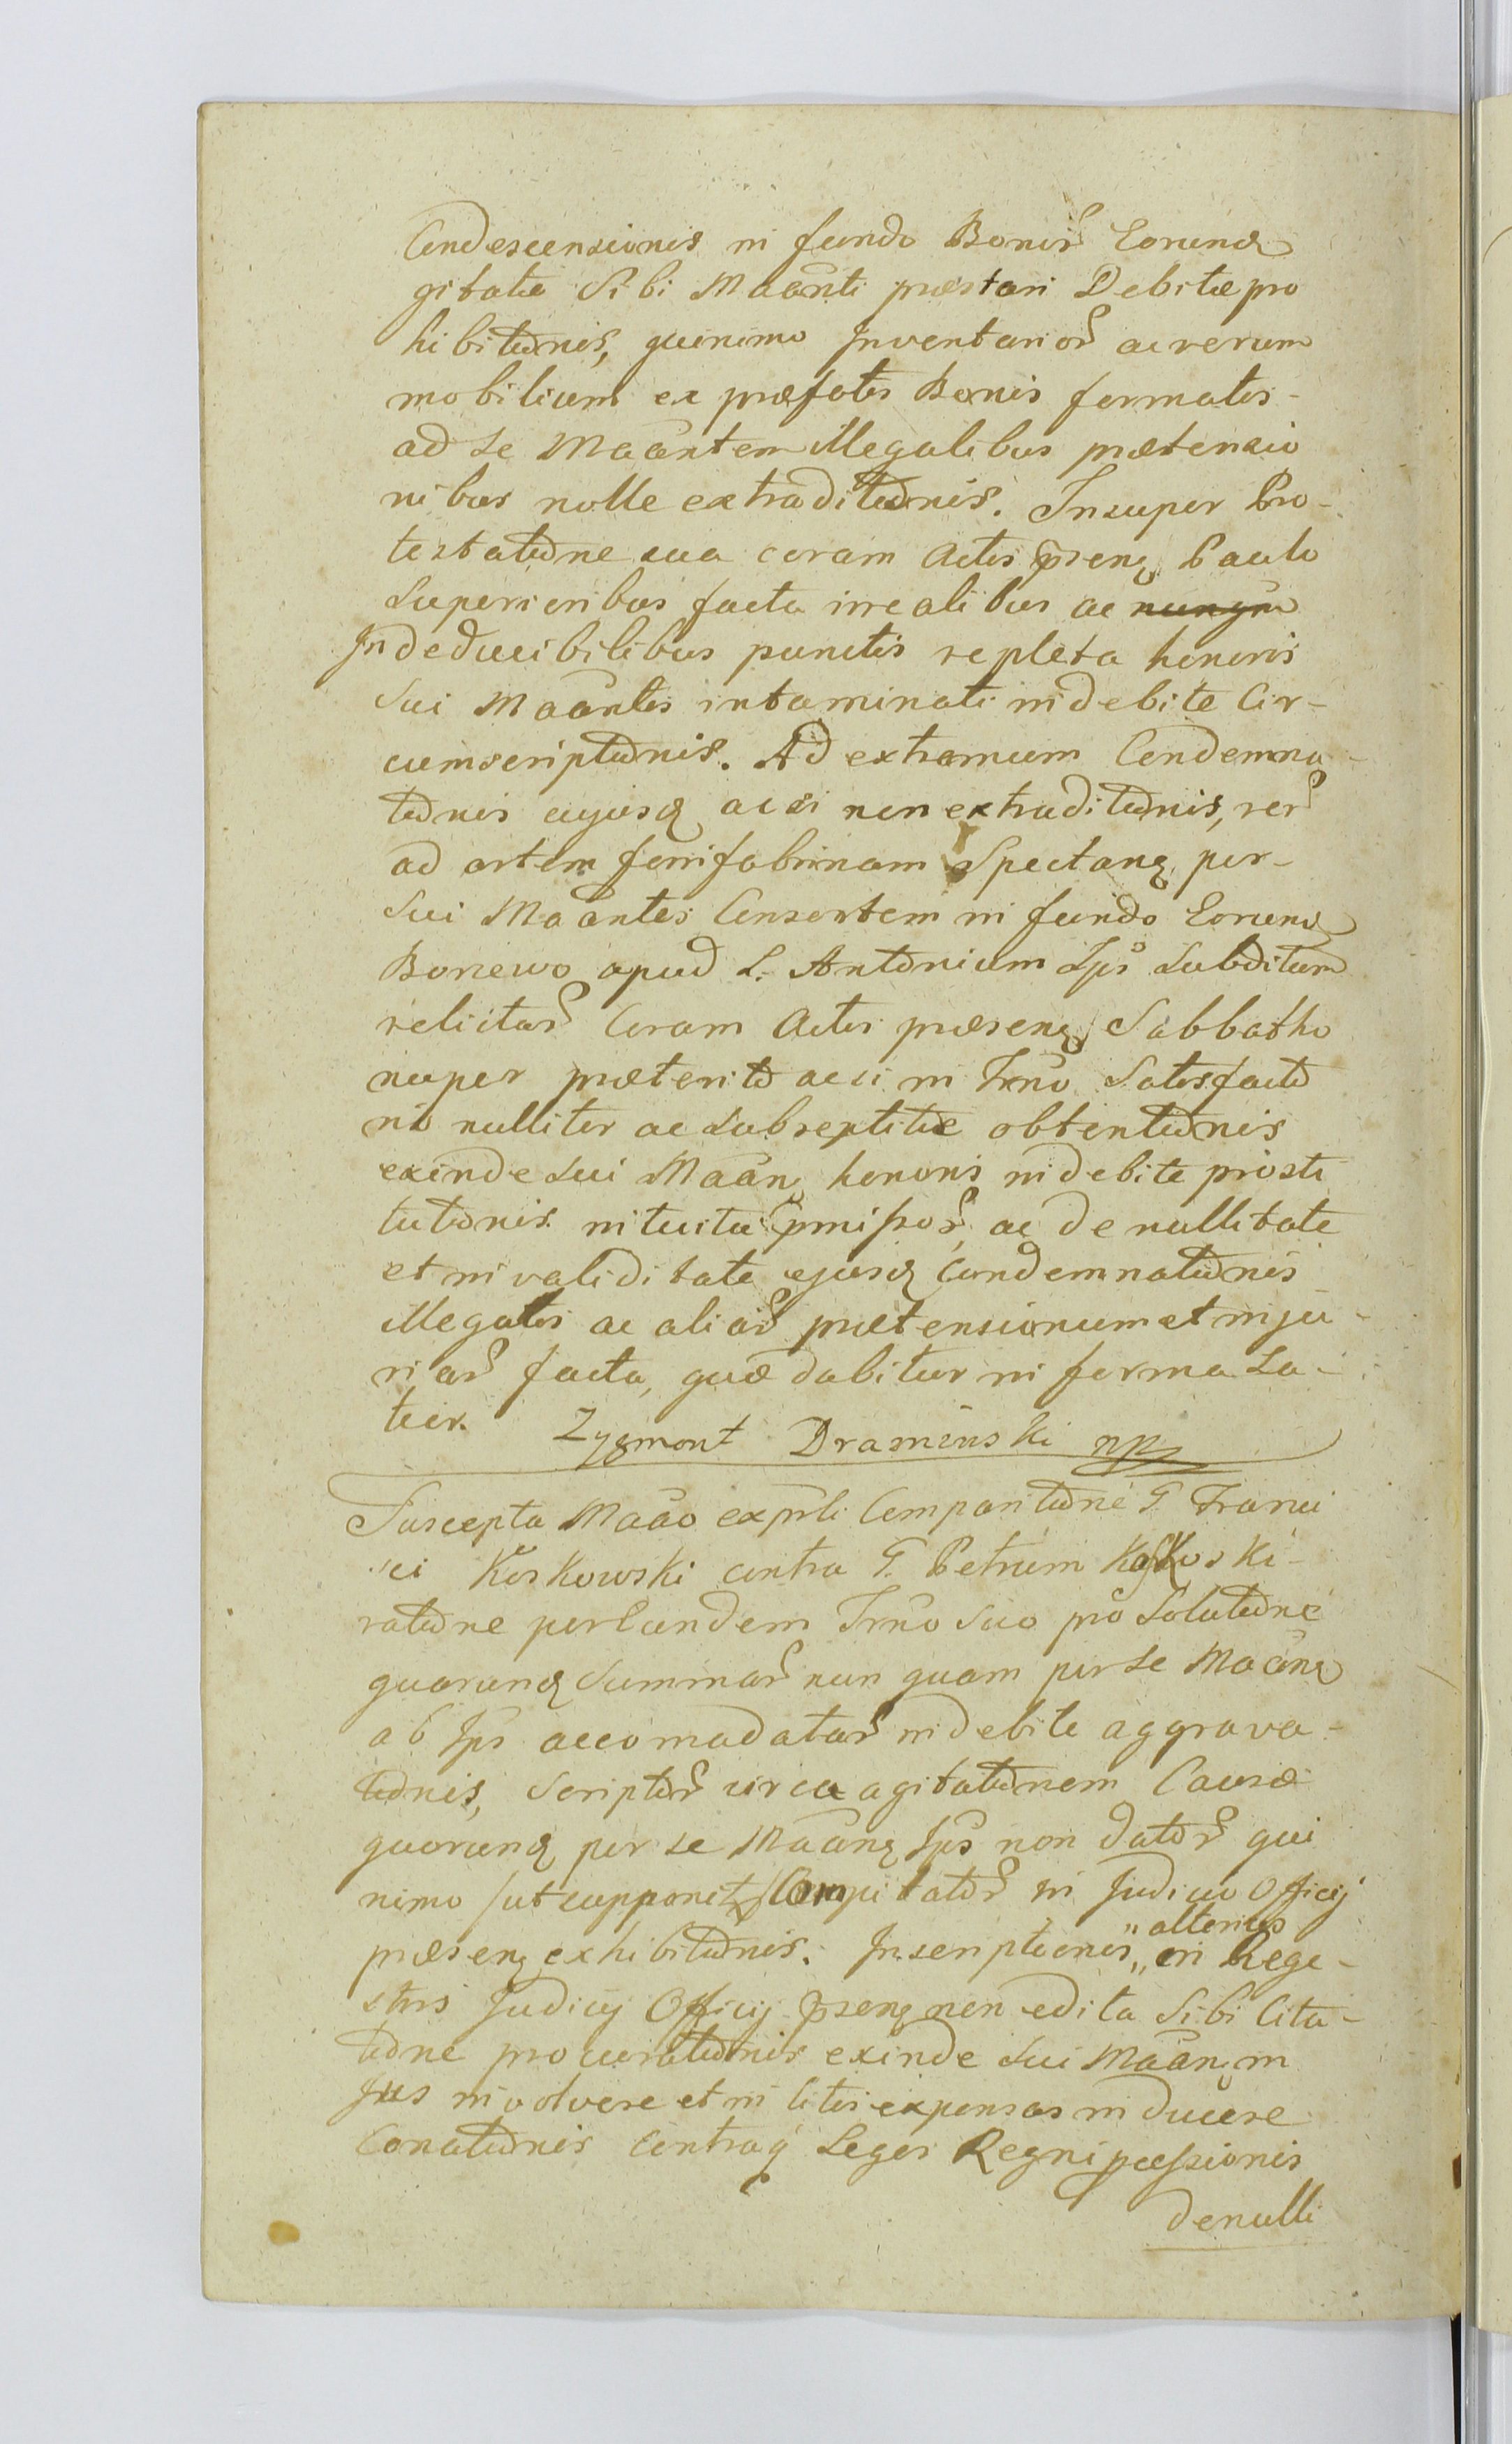 Condescensionis in fundo Bonor̃ Eorund
gitatæ Sibi Maãnti præstari Debitæ pro
hibitõnis, quinimo Inventarior̃ ac rerum
mobilium ex præfatis Bonis formatis-
ad se Maãntem illegalibus prætensio
nibus nolle extraditõnis. Insuper Pro-
testatõne sua coram Actis p̃senq Paulo
Superioribus facta irrealibus ac nunqm
Indeducibilibus punctis repleta honoris
Sui Maãntis intaminati indebite Cir-
cumscriptõnis. Ad extremum Condemna-
tõnis ejusd acsi non extraditõnis, rer̃
ad artem ferrifabrinam Spectanq per-
Sui Maãntis Consortem in fundo Eorund
Boniewo apud L. Antõnium Ips̃ Subditum
relictar̃ Coram Actis præsenq Sabbatho
nuper præteritõ acsi in Trño Satisfactõ
nis nulliter ac Subreptitiæ obtentõnis
exinde Sui Maãnq honoris indebite prosti
tutõnis intuitu p̃missor̃, ac de nullitate
et invaliditate ejusd Condemnatõnis
illegalis ac aliar̃ prætensionum et inju-
riar̃ facta, quæ dabitur in forma La-
tier. Zygmont Dramiński mp
Suscepta Maãõ expr̃li Comparitõne G. Franci
sci Koskowski contra G. Petrum Koskoski-
ratõne per Eundem Trño Suo pro Solutõne
quarund Summar̃ nunquam per se Maãnq
ab Ips̃ accomodatar̃ indebite aggrava-
tõnis, Scriptor̃ circa agitatõnem Causæ
quorund per se Maãnq Ips̃ non dator̃ qui
nimo /ut supponit/ Compilator̃ in Judicio Officij
præsenq exhibitõnis. Inscriptionis „alterius
in Rege-
stris Judicij Officij p̃senq non edita Sibi Cita-
tõne procuratõnis exinde Sui Maãnq in
Jus involvere et in litis expensas inducere
Conatõnis contraq Leges Regni p̃cessionis
denulli